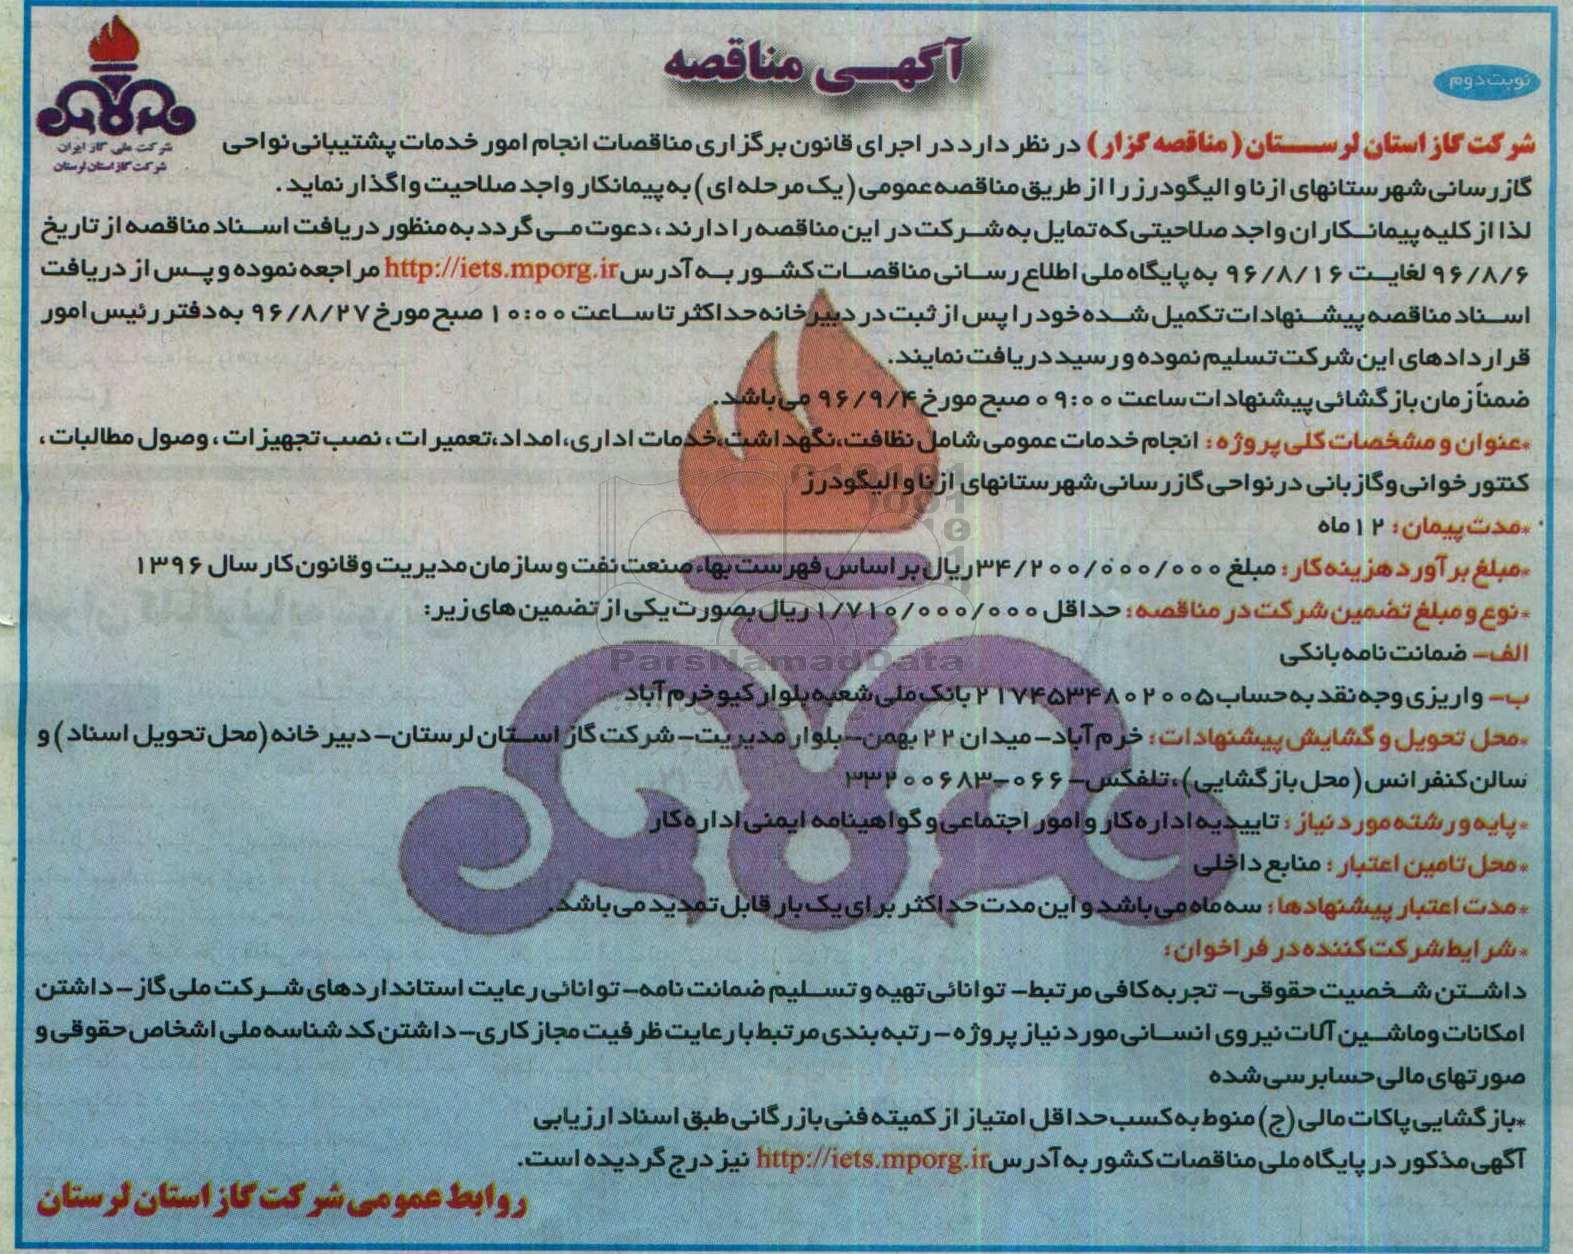 آگهی مناقصه
نوبت دوم
شرکت ملی گاز ایران
شرکت گاز استان لرستان
شرکت گاز استان لرستان (مناقصه گزار) در نظر دارد در اجرای قانون برگزاری مناقصات انجام امور خدمات پشتیبانی نواحی
گازرسانی شهرستانهای ازنا و الیگودرز را از طریق مناقصه عمومی (یک مرحله ای) به پیمانکار واجد صلاحیت واگذار نماید.
لذا از کلیه پیمانکاران واجد صلاحیتی که تمایل به شرکت در این مناقصه را دارند، دعوت می گردد به منظور دریافت اسناد مناقصه از تاریخ
۹۶/۸/۶ لغایت ۹۶/۸/۱۶ به پایگاه ملی اطلاع رسانی مناقصات کشور به آدرس http://iets.mporg.ir مراجعه نموده و پس از دریافت
اسناد مناقصه پیشنهادات تکمیل شده خود را پس از ثبت در دبیرخانه حداکثر تا ساعت ۱۰:۰۰ صبح مورخ ۹۶/۸/۲۷ به دفتر رئیس امور
قراردادهای این شرکت تسلیم نموده و رسید دریافت نمایند.
ضمناً زمان بازگشائی پیشنهادات ساعت ۰۹:۰۰ صبح مورخ ۹۶/۹/۴ می باشد.
*عنوان و مشخصات کلی پروژه: انجام خدمات عمومی شامل نظافت، نگهداشت، خدمات اداری، امداد، تعمیرات، نصب تجهیزات، وصول مطالبات،
کنتور خوانی و گازبانی در نواحی گازرسانی شهرستانهای ازنا و الیگودرز
*مدت پیمان: ۱۲ ماه
*مبلغ برآورد هزینه کار: مبلغ ۳۴/۲۰۰/۰۰۰/۰۰۰ ریال بر اساس فهرست بهاء صنعت نفت و سازمان مدیریت و قانون کار سال ۱۳۹۶
*نوع و مبلغ تضمین شرکت در مناقصه: حداقل ۱/۷۱۰/۰۰۰/۰۰۰ ریال بصورت یکی از تضمین های زیر:
الف- ضمانت نامه بانکی
ب- واریزی وجه نقد به حساب ۲۱۷۴۵۳۴۸۰۲۰۰۵ بانک ملی شعبه بلوار کیو خرم آباد
*محل تحویل و گشایش پیشنهادات: خرم آباد- میدان ۲۲ بهمن- بلوار مدیریت- شرکت گاز استان لرستان- دبیرخانه (محل تحویل اسناد) و
سالن کنفرانس (محل بازگشایی)، تلفکس- ۰۶۶-۳۳۲۰۰۶۸۳
*پایه و رشته مورد نیاز: تاییدیه اداره کار و امور اجتماعی و گواهینامه ایمنی اداره کار
*محل تامین اعتبار: منابع داخلی
*مدت اعتبار پیشنهادها: سه ماه می باشد و این مدت حداکثر برای یک بار قابل تمدید می باشد.
*شرایط شرکت کننده در فراخوان:
داشتن شخصیت حقوقی- تجربه کافی مرتبط- توانائی تهیه و تسلیم ضمانت نامه- توانائی رعایت استانداردهای شرکت ملی گاز- داشتن
امکانات و ماشین آلات نیروی انسانی مورد نیاز پروژه - رتبه بندی مرتبط با رعایت ظرفیت مجاز کاری- داشتن کد شناسه ملی اشخاص حقوقی و
صورتهای مالی حسابرسی شده
*بازگشایی پاکات مالی (ج) منوط به کسب حداقل امتیاز از کمیته فنی بازرگانی طبق اسناد ارزیابی
آگهی مذکور در پایگاه ملی مناقصات کشور به آدرس http://iets.mporg.ir نیز درج گردیده است.
روابط عمومی شرکت گاز استان لرستان
ParsNamadData